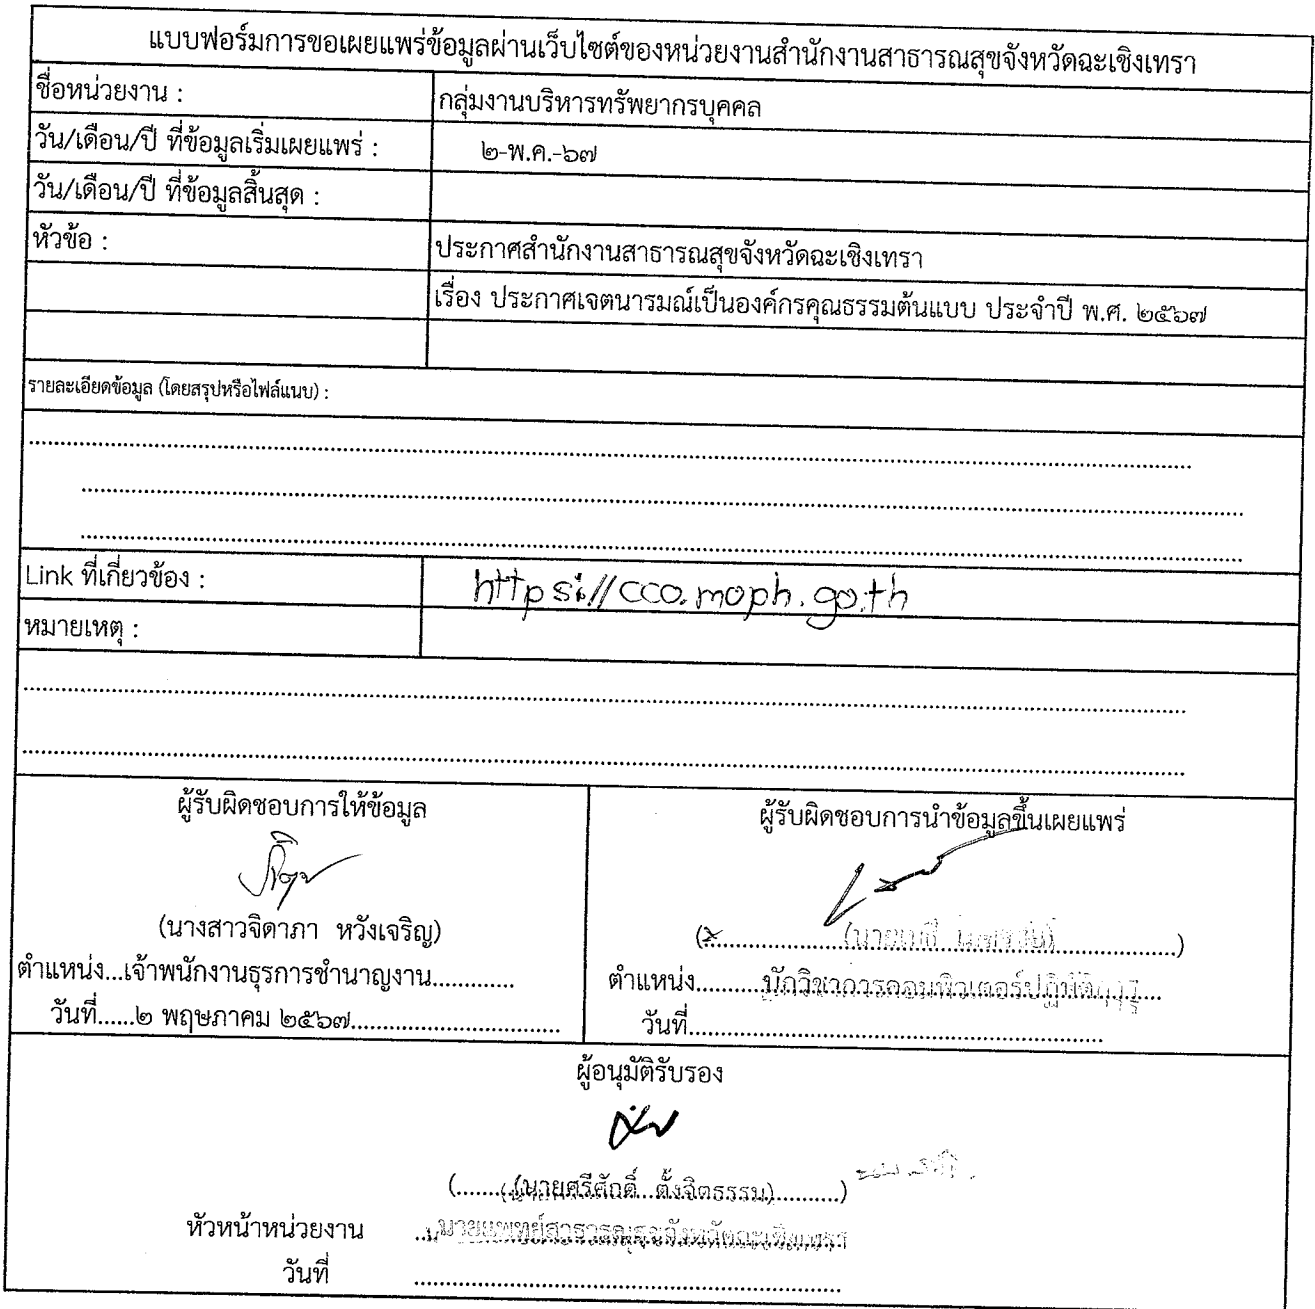 แบบฟอร์มการขอเผยแพร่ข้อมูลผ่านเว็บไซต์ของหน่วยงานสำนักงานสาธารณสุขจังหวัดฉะเชิงเทรา
ชื่อหน่วยงาน : กลุ่มงานบริหารทรัพยากรบุคคล
วัน/เดือน/ปี ที่ข้อมูลเริ่มเผยแพร่ : ๒-พ.ค.-๖๗
วัน/เดือน/ปี ที่ข้อมูลสิ้นสุด :
หัวข้อ : ประกาศสำนักงานสาธารณสุขจังหวัดฉะเชิงเทรา
เรื่อง ประกาศเจตนารมณ์เป็นองค์กรคุณธรรมต้นแบบ ประจำปี พ.ศ. ๒๕๖๗
รายละเอียดข้อมูล (โดยสรุปหรือไฟล์แนบ) :
Link ที่เกี่ยวข้อง : https://cco.moph.go.th
หมายเหตุ :
ผู้รับผิดชอบการให้ข้อมูล
(นางสาวจิดาภา หวังเจริญ)
ตำแหน่ง...เจ้าพนักงานธุรการชำนาญงาน.............
วันที่......๒ พฤษภาคม ๒๕๖๗..................................
ผู้รับผิดชอบการนำข้อมูลขึ้นเผยแพร่
ตำแหน่ง..........นักวิชาการคอมพิวเตอร์ปฏิบัติการ...
วันที่..................................................................
ผู้อนุมัติรับรอง
(........(นายศรีศักดิ์ ตั้งจิตธรรม)..........)
หัวหน้าหน่วยงาน นายแพทย์สาธารณสุขจังหวัดฉะเชิงเทรา
วันที่ ..................................................................